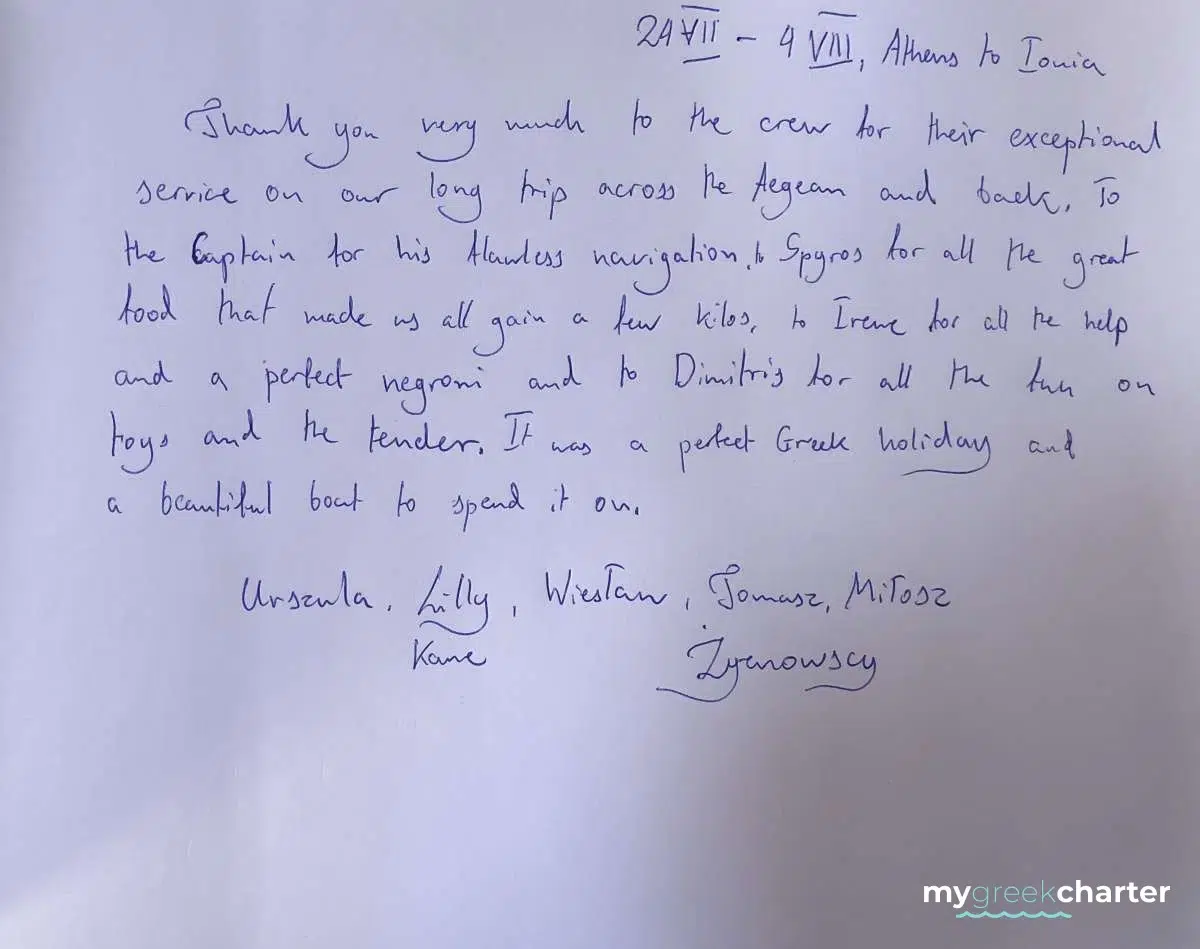 24 VII - 4 VIII, Athens to Ionia
Thank you very much to the crew for their exceptional
service on our long trip across the Aegean and back. To
the Captain for his flawless navigation, to Spyros for all the great
food that made us all gain a few kilos, to Irene for all the help
and a perfect negroni and to Dimitris for all the fun on
toys and the tender. It was a perfect Greek holiday and
a beautiful boat to spend it on.
Urszula, Lilly, Wiesław, Tomasz, Miłosz
Kane Żyznowscy
mygreekcharter